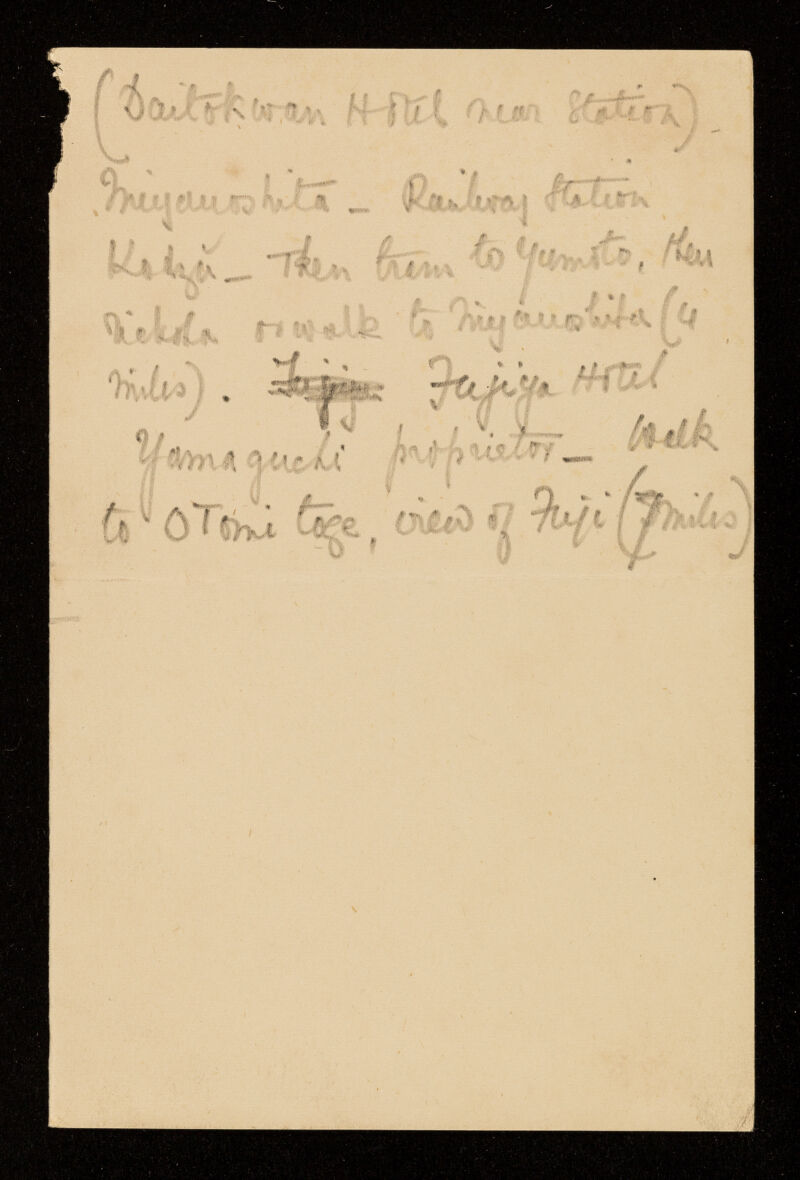 (Daitokwan Hotel near Station) -
Miyanoshita - Railway Station
Kodzū - Then tram to Yumoto, then
ricksha or walk to Miyanoshita (4
miles). Fujiya Fujiya Hotel
Yamaguchi proprietor - Walk
to OTomi toge, view of Fuji (7 miles)